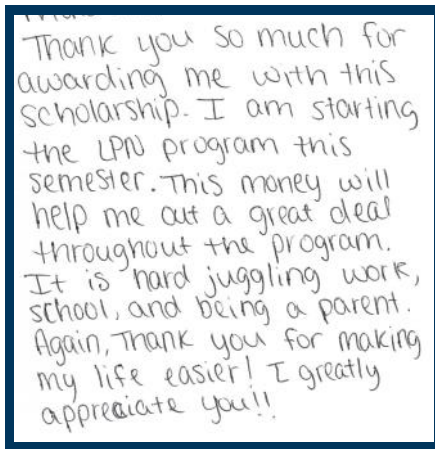 Thank you so much for
awarding me with this
scholarship. I am starting
the LPN program this
semester. This money will
help me out a great deal
throughout the program.
It is hard juggling work,
school, and being a parent.
Again, Thank you for making
my life easier! I greatly
appreciate you!!